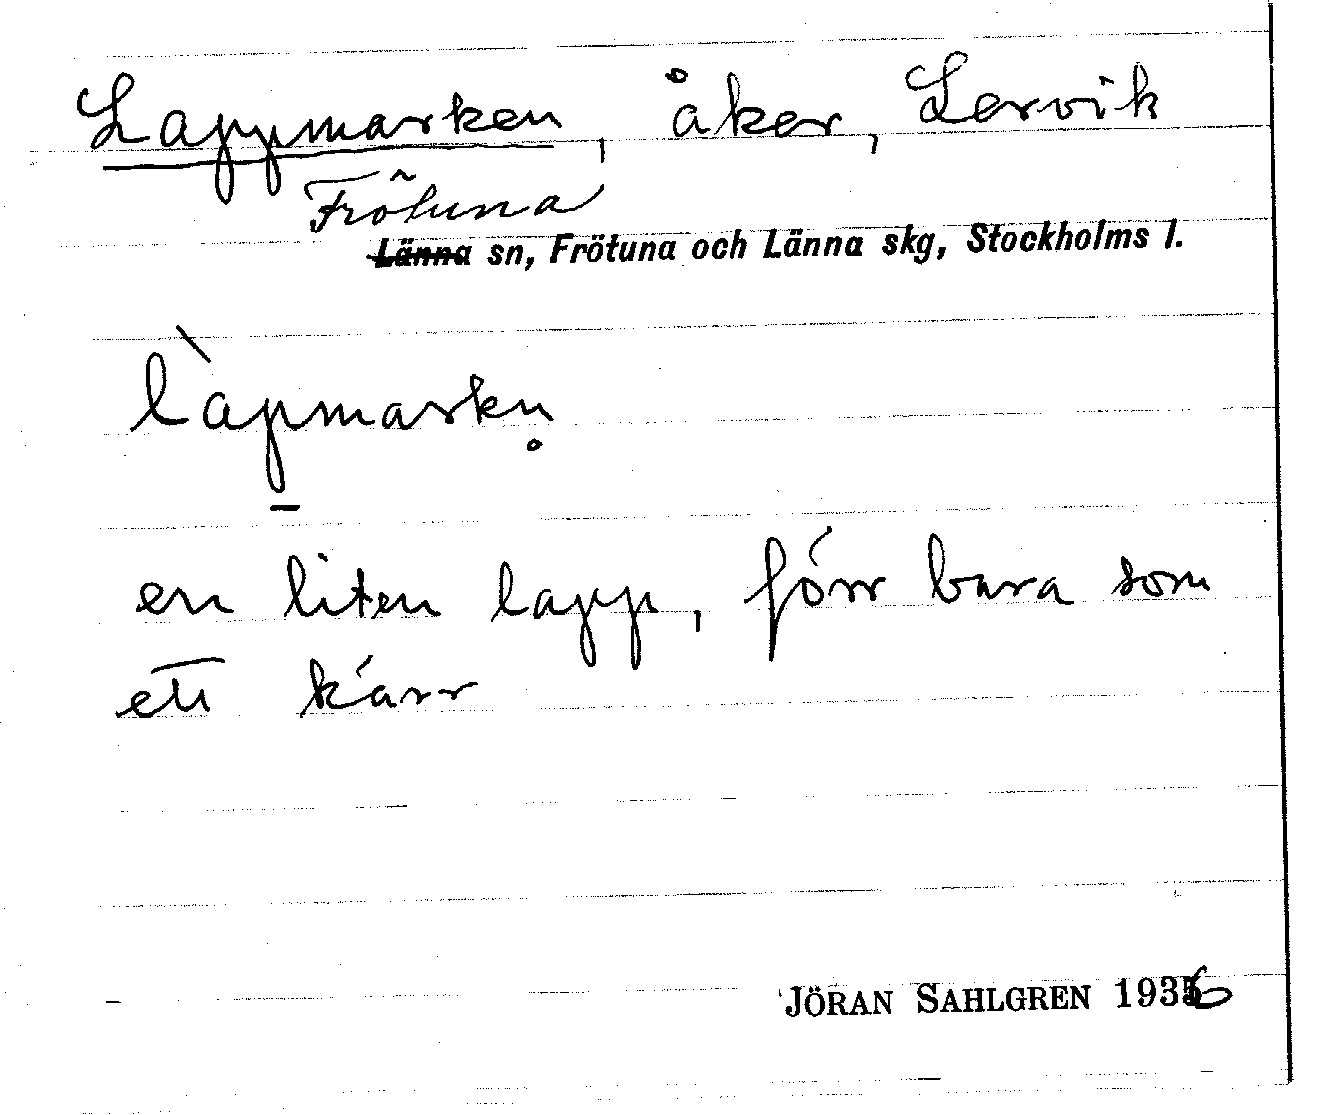 Lappmarken, åker, Lervik
Frötuna
Länna sn, Frötuna och Länna skg, Stockholms l.
l`apmarkn̥
en liten lapp, förr bara som
ett kärr
JÖRAN SAHLGREN 1936